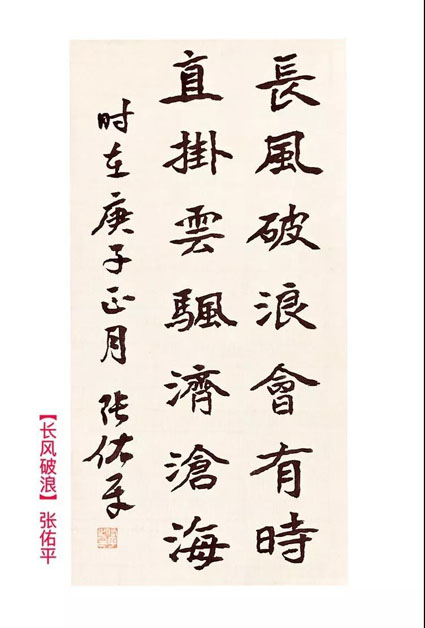 長風破浪會有時
直掛雲颿濟滄海
时在庚子正月 张佑平
【长风破浪】张佑平